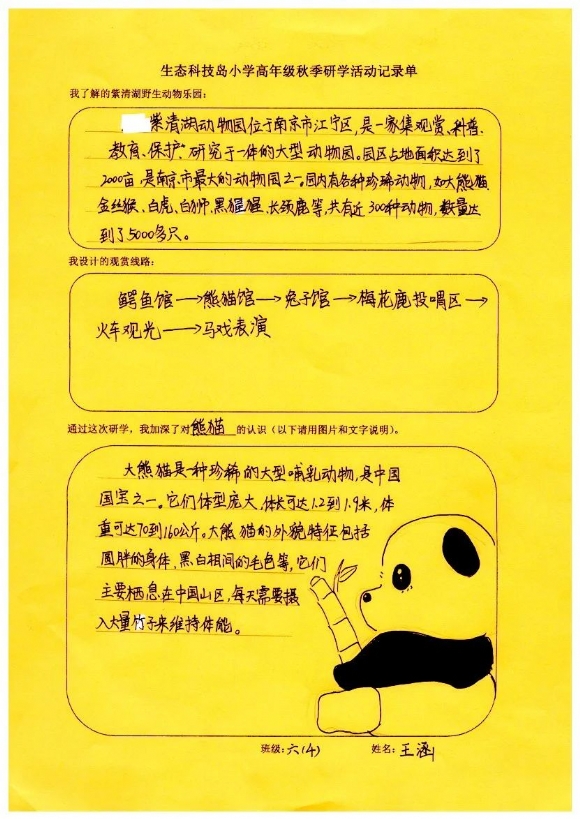 生态科技岛小学高年级秋季研学活动记录单
我了解的紫清湖野生动物乐园：
紫清湖动物园位于南京市江宁区，是一家集观赏、科普、
教育、保护、研究于一体的大型动物园。园区占地面积达到了
2000亩，是南京市最大的动物园之一。园内有各种珍稀动物，如大熊猫、
金丝猴、白虎、白狮、黑猩猩、长颈鹿等，共有近300种动物，数量达
到了5000多只。
我设计的观赏线路：
鳄鱼馆→熊猫馆→兔子馆→梅花鹿投喂区→
火车观光→马戏表演
通过这次研学，我加深了对熊猫的认识（以下请用图片和文字说明）。
大熊猫是一种珍稀的大型哺乳动物，是中国
国宝之一。它们体型庞大，体长可达1.2到1.9米，体
重可达70到160公斤。大熊猫的外貌特征包括
圆胖的身体，黑白相间的毛色等，它们
主要栖息在中国山区，每天需要摄
入大量竹子来维持体能。
班级：六(4) 姓名：王涵